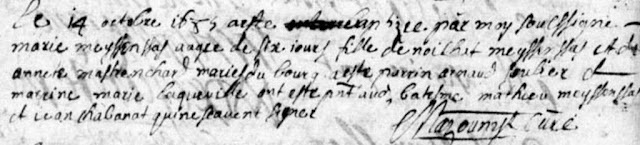 Le 14 octobre 1675 a este par moy soussigne
marie meyssonsas aagee de six jours fille de noilhet meyssonsas et de
annete mastranchard maries du bourg a este parrin arnaud soulier et
marrine marie laqueville ont este pnt aud batesme mathieu meyssonsas
et jean chabanat qui ne scavent signer
Curé